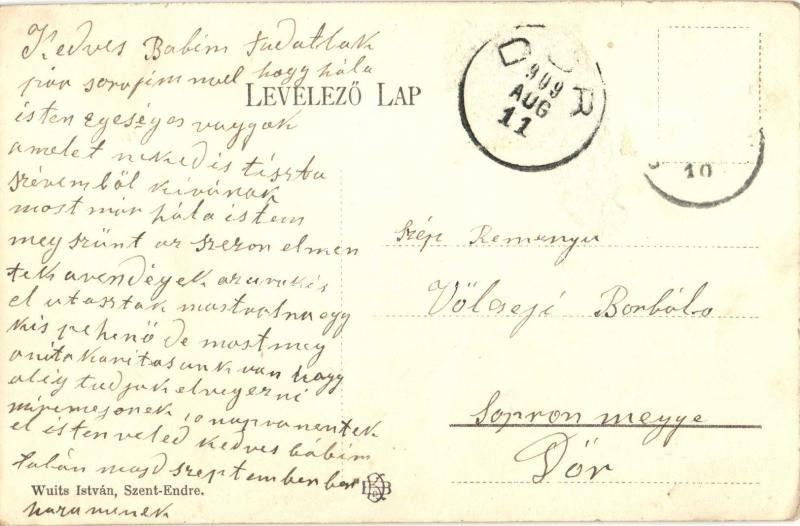 Kedves Babim tudatlak
pár soraimmel hogy hála
LEVELEZŐ LAP
isten egeséges vagyok
amelet neked is tiszta
szévemből kivánok
most már hála istem
megszünt az szezon elmen
tek a vendégek az urak is
el utasztak most volna egy
kis pehenő de most meg
anita karitasunk van hogy
alig tudjuk elvegezni
mire mejönek 10 napra mentek
el isten veled kedves bábim
talán majd szeptemberben
haza menek
DÖR
909
AUG
11
10
szép Remenyü
Völcseji Borbála
Sopron megye
Dör
Wuits István, Szent-Endre.